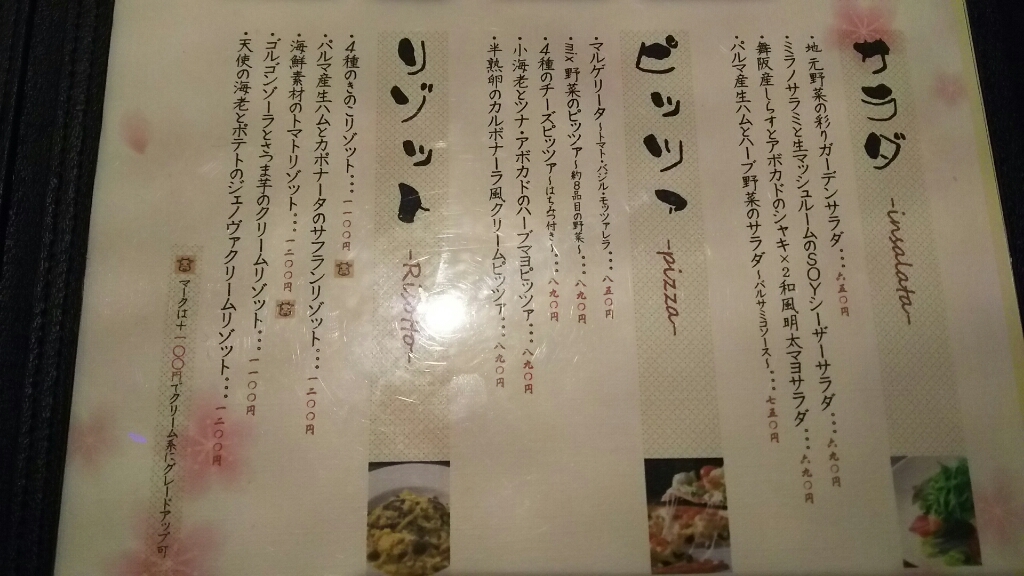 サラダ -insalata-
・地元野菜の彩りガーデンサラダ….六五〇円
・ミラノサラミと生マッシュルームのSOYシーザーサラダ….六九〇円
・舞阪産しらすとアボカドのシャキ×2和風明太マヨサラダ….六九〇円
・パルマ産生ハムとハーブ野菜のサラダ〜バルサミコソース〜….七五〇円
ピッツァ -pizza-
・マルゲリータ〜トマト・バジル・モッツァレラ….八五〇円
・mix野菜のピッツァ〜約8品目の野菜〜….八九〇円
・4種のチーズピッツァ〜はちみつ付き〜….八九〇円
・小海老とツナ・アボカドのハーブマヨピッツァ….八九〇円
・半熟卵のカルボナーラ風クリームピッツァ….八九〇円
リゾット -Risotto-
・4種のきのこリゾット….一一〇〇円
・パルマ産生ハムとカポナータのサフランリゾット….一二〇〇円
・海鮮素材のトマトリゾット….一二〇〇円
・ゴルゴンゾーラとさつま芋のクリームリゾット….一一〇〇円
・天使の海老とポテトのジェノヴァクリームリゾット….一二〇〇円
マークは+一〇〇円でクリーム系にグレードアップ可